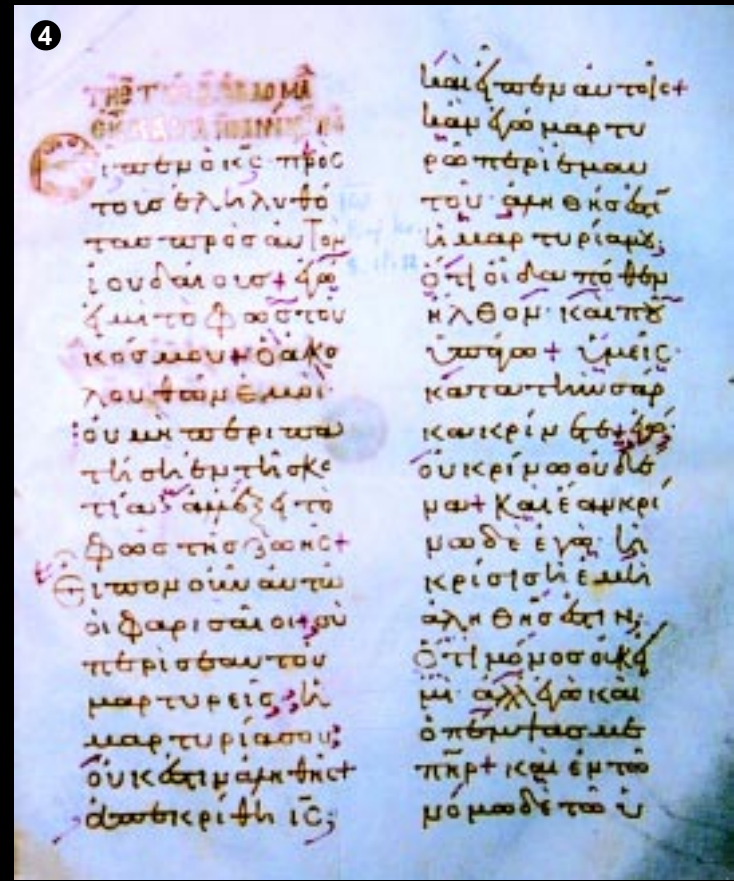 4
εἶπεν ὁ κ̅ς̅ πρὸς
τοὺσ ἐληλυθό
τασ πρὸσ αὐτὸν
ἰουδαίουσ + ἐγώ
εἰμι τὸ φῶς τοῦ
κόσμου + ὁ ἀκο
λουθῶν ἐμοὶ
οὐ μὴ περιπα
τήση ἐν τῆ σκο
τία· ἀλλ' ἕξει τὸ
φῶσ τῆσ ζωῆς +
Εἶπον οὖν αὐτῶ
οἱ φαρισαῖοι + σὺ
περὶ σεαυτοῦ
μαρτυρεῖς; ἡ
μαρτυρία σου
οὐκ ἔστιν ἀληθής +
ἀπεκρίθη ι̅ς̅
καὶ εἶπεν αὐτοῖς +
κἂν ἐγὼ μαρτυ
ρῶ περὶ ἐμαυ
τοῦ ἀληθήσ ἐστι
ἡ μαρτυρία μου
ὅτι οἶδα πόθεν
ἦλθον· καὶ ποῦ
ὑπάγω + ὑμεῖς
κατὰ τὴν σάρ
κα κρίνετε + ἐγὼ
οὐ κρίνω οὐδέ
να + καὶ ἐὰν κρί
νω δὲ ἐγὼ· ἡ
κρίσισ ἡ ἐμὴ
ἀληθήσ ἐστιν
ὅτι μόνοσ οὐκ εἰ
μὶ· ἀλλ' ἐγὼ καὶ
ὁ πέμψασ με
π̅η̅ρ̅ + καὶ ἐν τῶ
νόμω δὲ τῶ ὑ